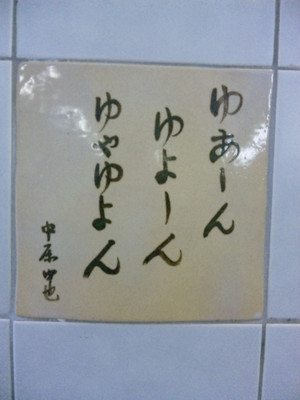 ゆあーん
ゆよーん
ゆやゆよん
中原中也